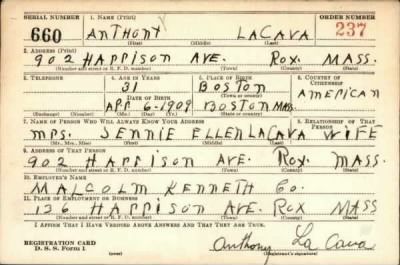 SERIAL NUMBER 1. NAME (Print) ORDER NUMBER
660 ANTHONY LACAVA 237
(First) (Middle) (Last)
2. ADDRESS (Print)
902 HARRISON AVE. ROX. MASS.
(Number and street or R. F. D. number) (Town) (County) (State)
3. TELEPHONE 4. AGE IN YEARS 5. PLACE OF BIRTH 6. COUNTRY OF CITIZENSHIP
31 BOSTON
DATE OF BIRTH (Town or county) AMERICAN
APR. 6-1909 BOSTON MASS.
(Exchange) (Number) (Mo.) (Day) (Yr.) (State or country)
7. NAME OF PERSON WHO WILL ALWAYS KNOW YOUR ADDRESS 8. RELATIONSHIP OF THAT PERSON
MRS. JENNIE ELLEN LACAVA WIFE
(Mr., Mrs., Miss) (First) (Middle) (Last)
9. ADDRESS OF THAT PERSON
902 HARRISON AVE. ROX. MASS.
(Number and street or R. F. D. number) (Town) (County) (State)
10. EMPLOYER'S NAME
MALCOLM KENNETH CO.
11. PLACE OF EMPLOYMENT OR BUSINESS
126 HARRISON AVE. ROX MASS
(Number and street or R. F. D. number) (Town) (County) (State)
I AFFIRM THAT I HAVE VERIFIED ABOVE ANSWERS AND THAT THEY ARE TRUE.
REGISTRATION CARD
D. S. S. Form 1
Anthony La Cava
(Registrant's signature)